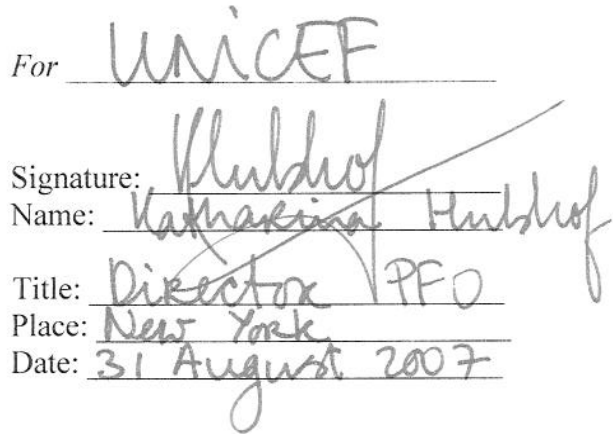 For UNICEF
Signature: KHulshof
Name: Katharina Hulshof
Title: Director PFO
Place: New York
Date: 31 August 2007